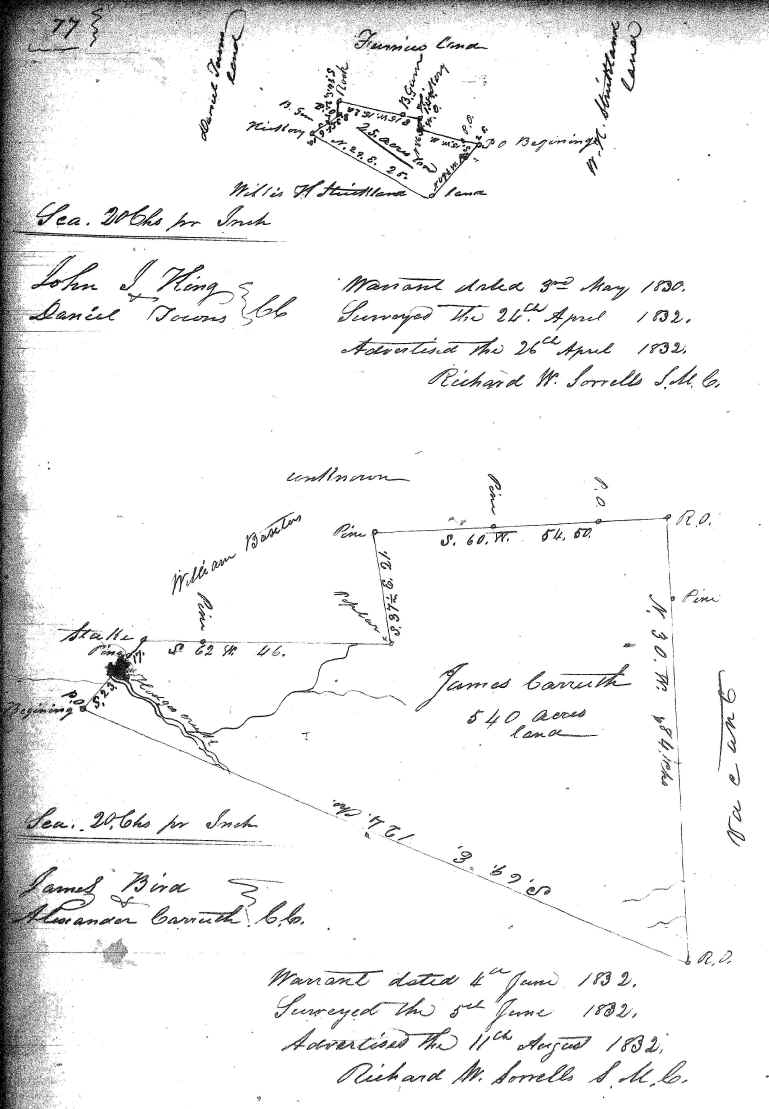 77
Daniel Towns
land
Furnius land
W. H. Strickland
land
Rock
B. Gum
Hickory
B. Gum
Hickory
P.O.
P.O Begining
25 acres land
N. 29. E. 25.
Willis H Strickland land
Sca. 20 Chs pr Inch
John I King
&
Daniel Towns } CC
Warrant dated 3rd May 1830.
Surveyed the 24th April 1832.
Advertised the 26th April 1832.
Richard W. Sorrells S.M.C.
unknown
William Baxters
Pine
Pine
P.O.
R.O.
S. 60. W. 54.50.
Pine
Poplar
Pine
Stake
Pine
S 62 W. 46.
N. 30. W. 84 chs
James Carruth
540 acres
land
vacant
Hodges creek
S. 23.
P.O.
Begining
S. 69. E. 124. Chs.
R.O.
Sca. 20. Chs pr Inch
James Bird
&
Alexander Carruth } C.C.
Warrant dated 4th June 1832.
Surveyed the 5th June 1832.
Advertised the 11th August 1832.
Richard W. Sorrells S.M.C.